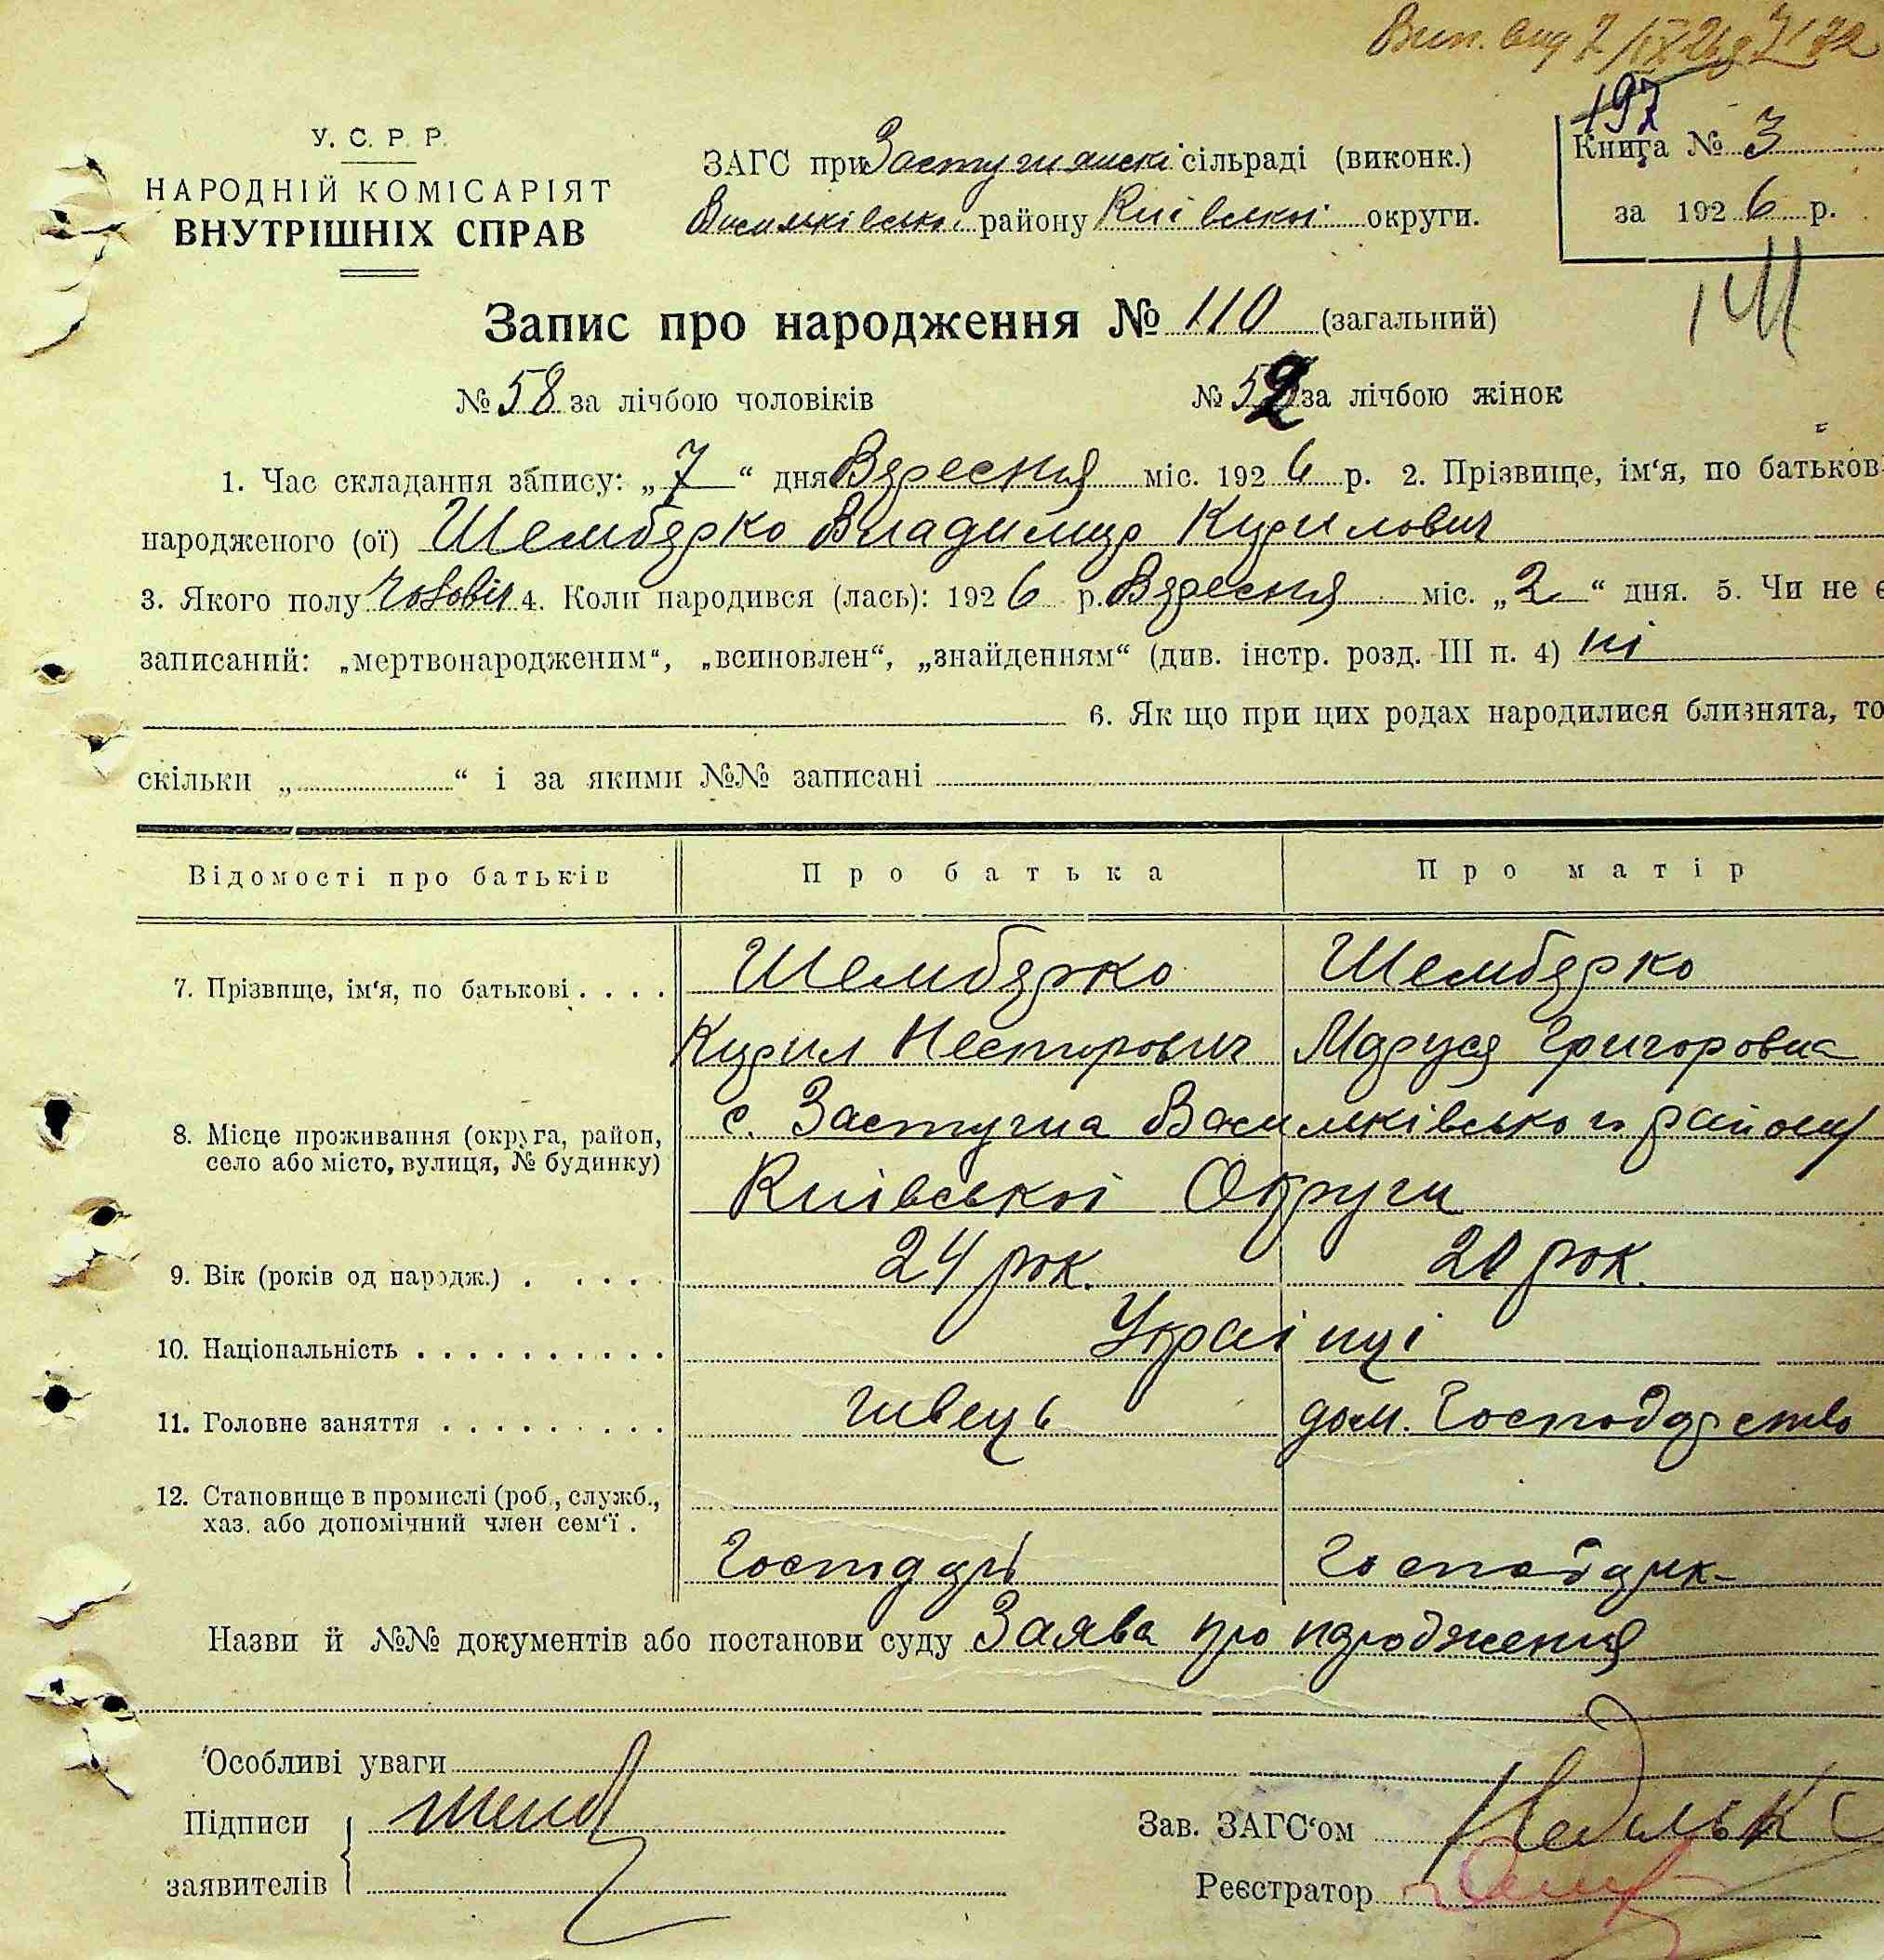 197
У. С. Р. Р.
НАРОДНІЙ КОМІСАРІЯТ
ВНУТРІШНІХ СПРАВ
ЗАГС при Застугнянскі сільраді (виконк.)
Васильківсько району Київської округи.
Книга № 3
за 1926 р.
Запис про народження № 110 (загальний)
№ 58 за лічбою чоловіків № 52 за лічбою жінок
1. Час складання запису: „7“ дня Вересня міс. 1926 р. 2. Прізвище, ім‘я, по батькові
народженого (ої) Шембярко Владимир Кирилович
3. Якого полу 4. Коли народився (лась): 1926 р. Вересня міс. „2“ дня. 5. Чи не є
записаний: „мертвонародженим“, „всиновлен“, „знайденням“ (див. інстр. розд. III п. 4) ні
6. Як що при цих родах народилися близнята, то
скільки „ “ і за якими №№ записані
Відомості про батьків Про батька Про матір
7. Прізвище, ім‘я, по батькові Шембярко Шембярко
Кирил Несторович Маруся Григоровна
8. Місце проживання (округа, район, село або місто, вулиця, № будинку) с. Застугна Васильківського району
Київської Округи
9. Вік (років од народж.) 24 рок. 20 рок.
10. Національність Українці
11. Головне заняття швець дом. Господарство
12. Становище в промислі (роб., служб.,
хаз. або допомічний член сем‘ї.
Господарь Господарк
Назви й №№ документів або постанови суду Заява про народження
Особливі уваги
Підписи
заявителів
Зав. ЗАГС‘ом
Реєстратор